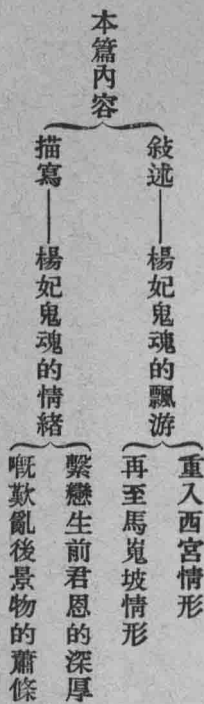 本篇內容
敍述——楊妃鬼魂的飄游
重入西宮情形
再至馬嵬坡情形
描寫——楊妃鬼魂的情緒
繫戀生前君恩的深厚
嘅歎亂後景物的蕭條